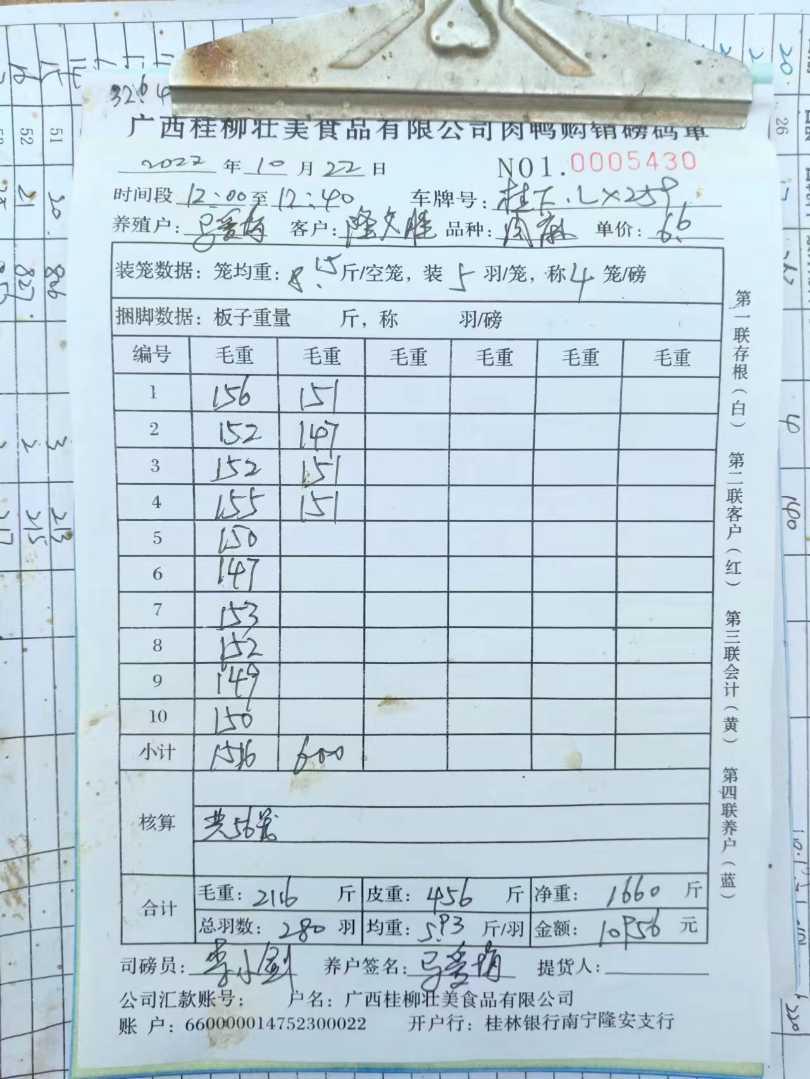 32.6 4
广西桂柳壮美食品有限公司肉鸭购销磅码单
2022 年 10 月 22 日 NO1.0005430
时间段 12:00 至 12:40 车牌号: 桂 LX259
养殖户: 客户: 隆 胜 品种: 肉麻 单价: 6.6
装笼数据: 笼均重: 8.15 斤/空笼, 装 5 羽/笼, 称 4 笼/磅
捆脚数据: 板子重量 斤, 称 羽/磅
编号 毛重 毛重 毛重 毛重 毛重 毛重
1 156 151
2 152 147
3 152 151
4 155 151
5 150
6 147
7 153
8 152
9 149
10 150
小计 1516 600
核算 共56笼
合计 毛重: 2116 斤 皮重: 456 斤 净重: 1660 斤
总羽数: 280 羽 均重: 5.93 斤/羽 金额: 10956 元
司磅员: 李小剑 养户签名: 提货人:
公司汇款账号: 户名: 广西桂柳壮美食品有限公司
账 户: 660000014752300022 开户行: 桂林银行南宁隆安支行
第一联存根(白) 第二联客户(红) 第三联会计(黄) 第四联养户(蓝)
51 20. 826
52 21 827
3 213
2 215
217